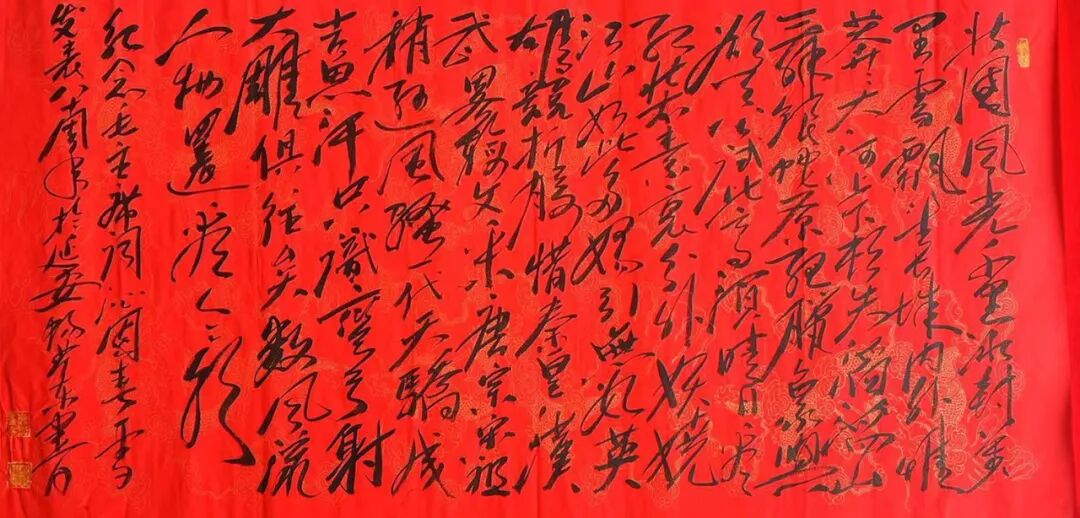 北國风光千里冰封萬
里雪飘望长城内外惟
莽莽大河上下顿失滔滔山
舞银蛇原驰腊象
欲与天公试比高须晴日看
红装素裹分外妖娆
江山如此多娇引無数英
雄竞折腰惜秦皇漢
武略输文采唐宗宋祖
稍逊风骚一代天骄成
吉思汗只識彎弓射
大雕俱往矣数风流
人物還看今朝
纪念毛主席词沁园春雪
发表八周年於延安